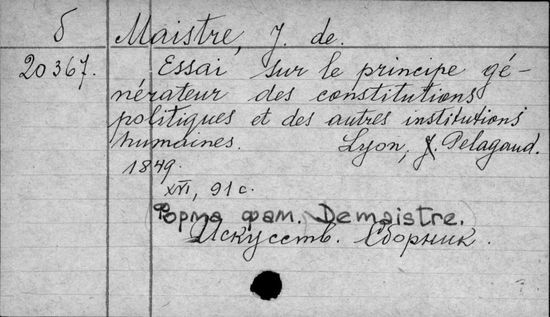 б Maistre, J. de.
20367. Essai sur le principe gé-
nérateur des constitutions
politiques et des autres institutions
humaines. Lyon, J. Pelagaud.
1849.
XVI, 91 с.
Форма фам. Demaistre.
Искусств. Сборник.